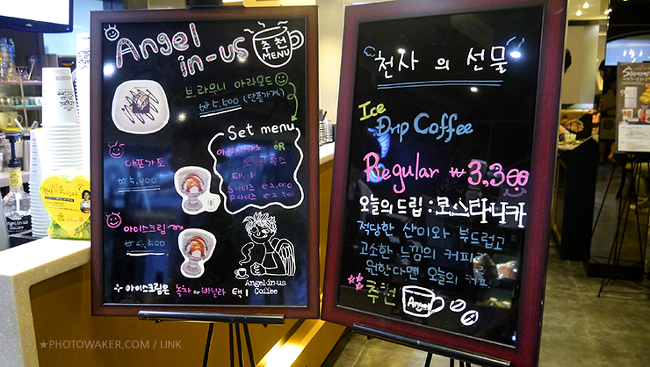 Angel
in-us
추천
MENU
브라우니 아라모드
₩5,500 (단품가격)
Set menu
OR
택 1
아포가토
₩5,000
아이스크림
₩4,500
Angel-in-us
Coffee
아이스크림은 녹차 or 바닐라 택 1
천사의 선물
Ice
Drip Coffee
Regular ₩3,300
오늘의 드립 : 코스타리카
적당한 산미와 부드럽고
고소한 느낌의 커피를
원한다면 오늘의 커피
추천
Angel
★PHOTOWAKER.COM / LINK